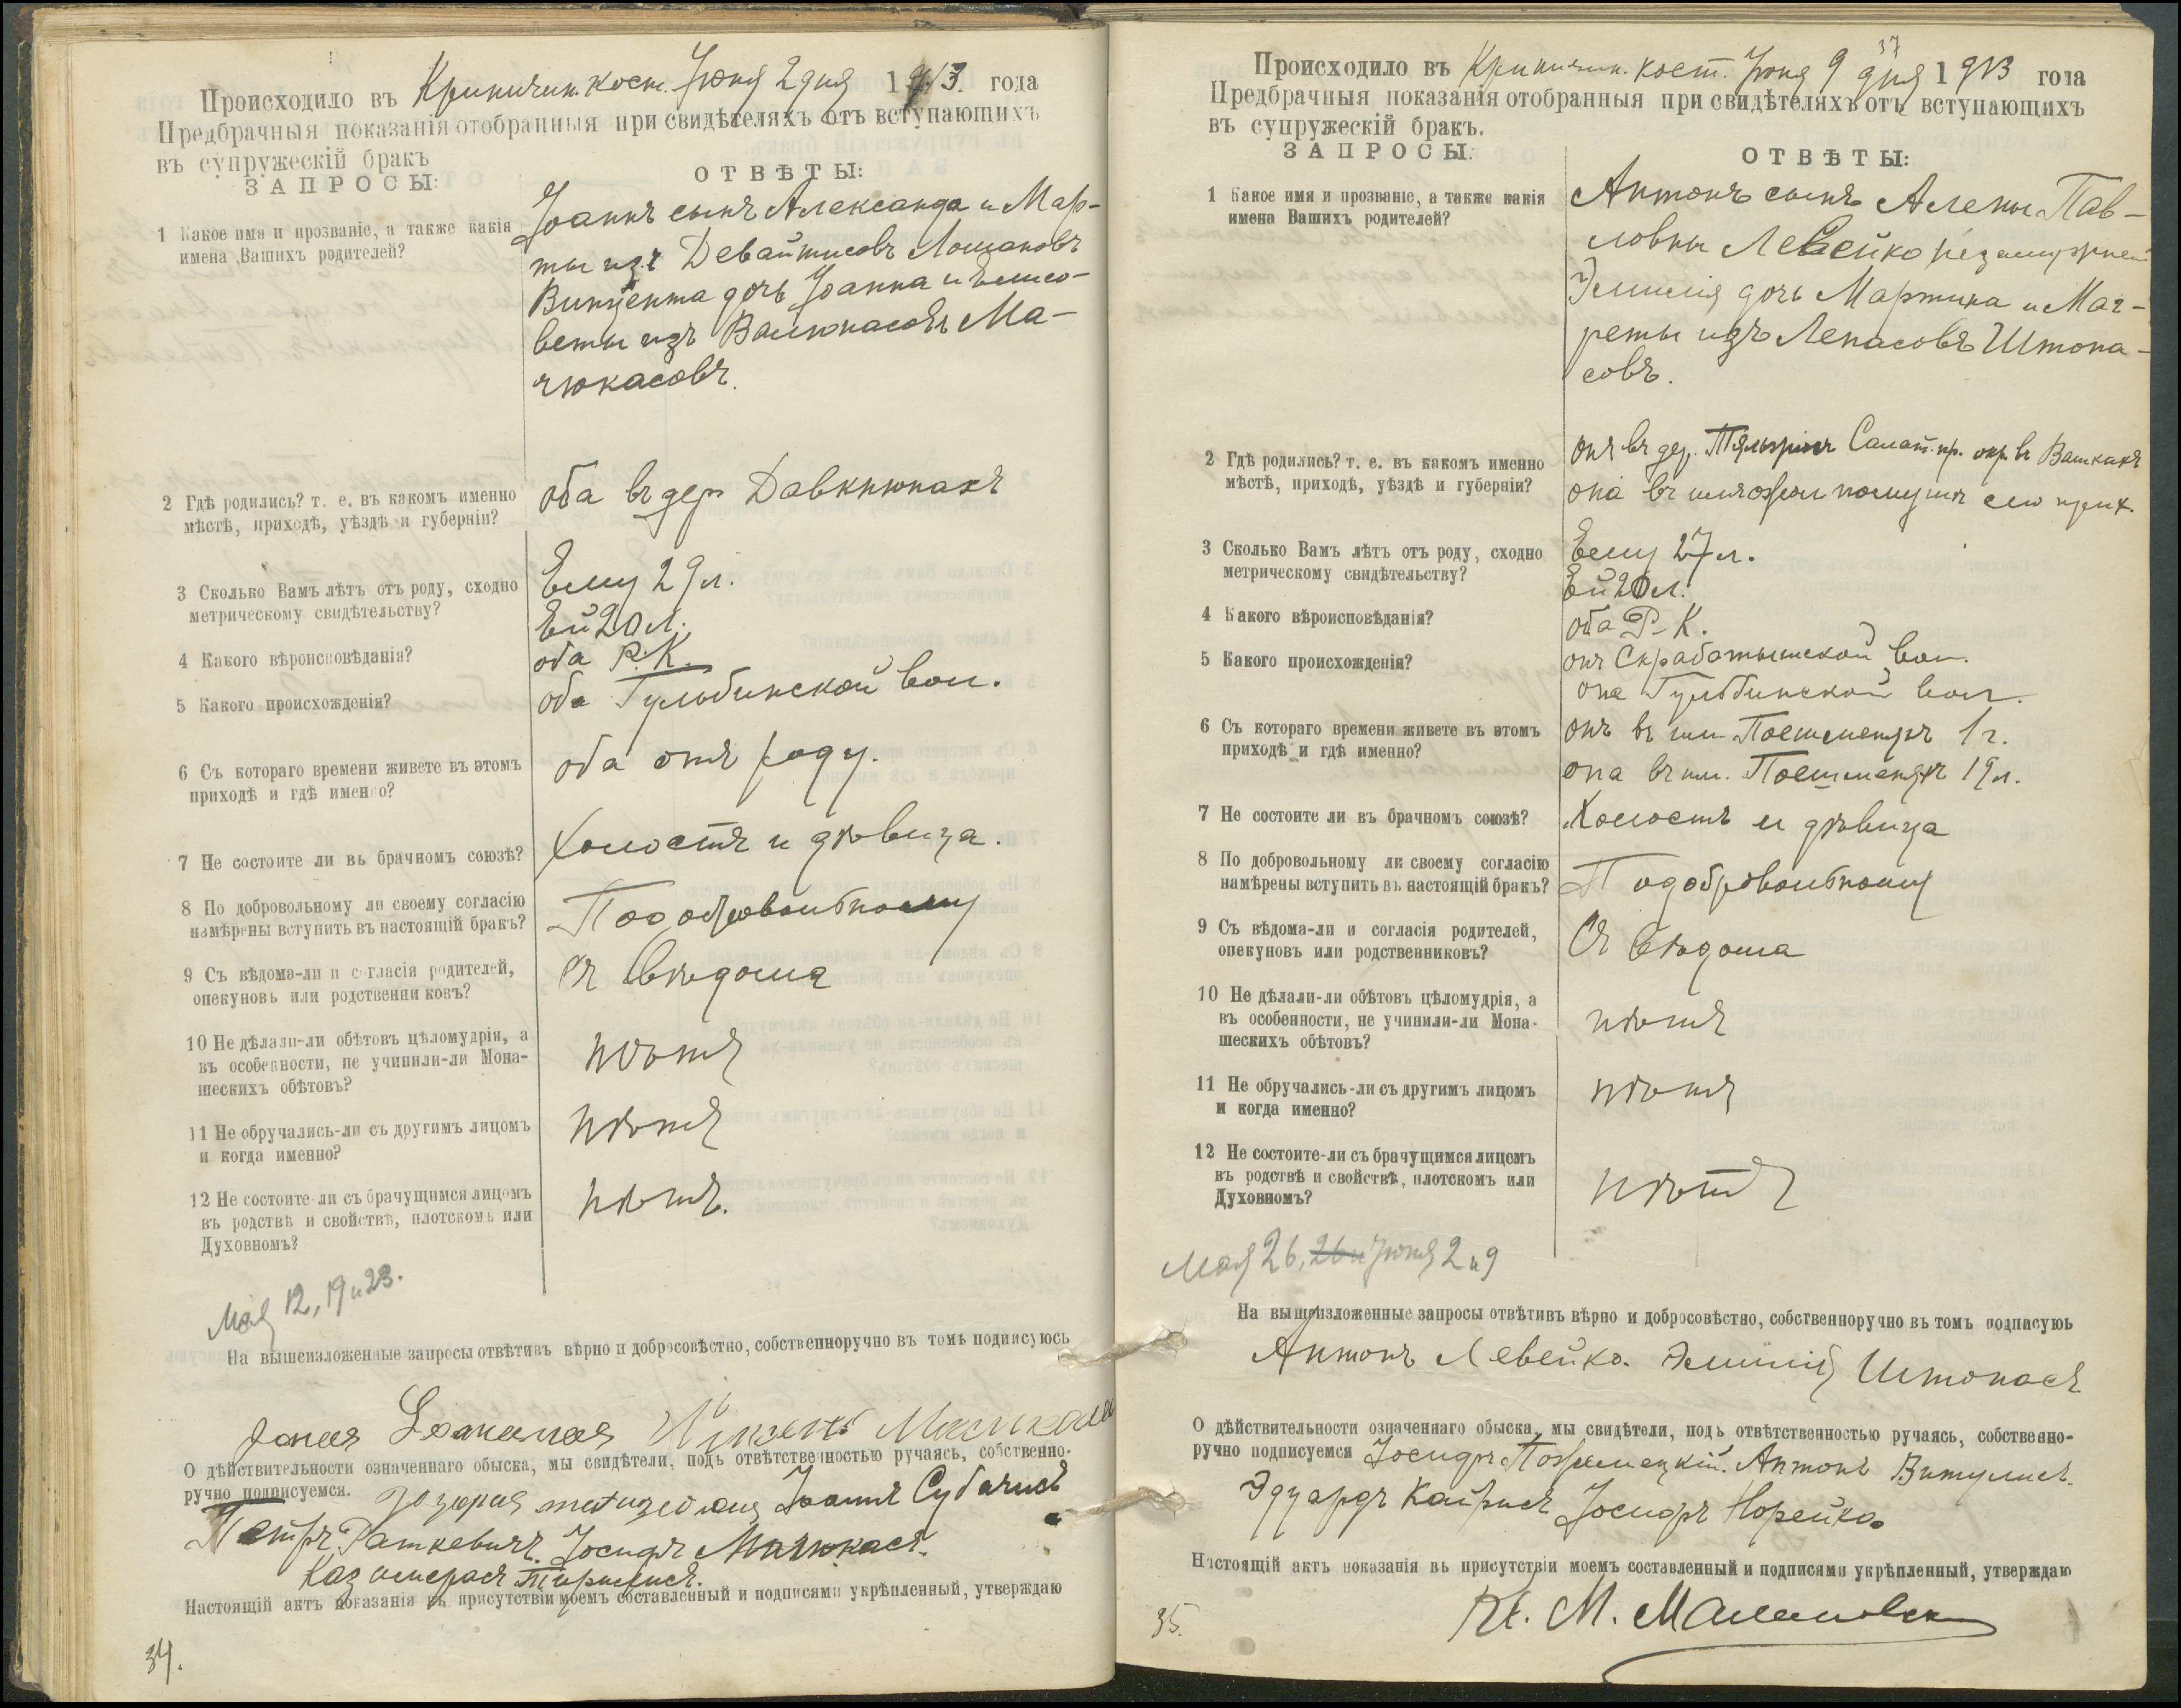 Происходило въ Криничин. кост. Іюня 2 дня 1913. года
Предбрачныя показанія отобранныя при свидѣтеляхъ отъ вступающихъ
въ супружескій бракъ
ЗАПРОСЫ:
ОТВѢТЫ:
1 Какое имя и прозваніе, а также какія
имена Вашихъ родителей?
Іоаннъ сынъ Александа и Мар-
ты изъ Девайтисовъ Лошаковъ
Винцента дочь Іоанна и Елисо-
веты изъ Валюнасовъ Ма-
чюкасовъ.
2 Гдѣ родились? т. е. въ какомъ именно
мѣстѣ, приходѣ, уѣздѣ и губерніи?
оба въ дер. Давкнюнахъ
3 Сколько Вамъ лѣтъ отъ роду, сходно
метрическому свидѣтельству?
Ему 29 л.
Ей 20 л.
4 Какого вѣроисповѣданія?
оба Р. К.
5 Какого происхожденія?
оба Гульбинской вол.
6 Съ котораго времени живете въ этомъ
приходѣ и гдѣ именно?
оба отъ роду.
7 Не состоите ли въ брачномъ союзѣ?
Холостъ и дѣвица.
8 По добровольному ли своему согласію
намѣрены вступить въ настоящій бракъ?
По добровольному
9 Съ вѣдома-ли и согласія родителей,
опекуновъ или родственниковъ?
Съ вѣдома
10 Не дѣлали-ли обѣтовъ цѣломудрія, а
въ особенности, не учинили-ли Мона-
шескихъ обѣтовъ?
нѣтъ
11 Не обручались-ли съ другимъ лицомъ
и когда именно?
нѣтъ
12 Не состоите-ли съ брачущимся лицомъ
въ родствѣ и свойствѣ, плотскомъ или
Духовномъ?
нѣтъ.
Мая 12, 19 и 23.
На вышеизложенные запросы отвѣтивъ вѣрно и добросовѣстно, собственноручно въ томъ подписуюсь
О дѣйствительности означеннаго обыска, мы свидѣтели, подъ отвѣтственностью ручаясь, собственно-
ручно подписуемся.
Іоаннъ Субачисъ
Петръ Раткевичъ. Іосифъ Мачюкасъ.
Настоящій актъ показанія въ присутствіи моемъ составленный и подписями укрѣпленный, утверждаю
34.
37
Происходило въ Криничин. кост. Іюня 9 дня 1913 года
Предбрачныя показанія отобранныя при свидѣтеляхъ отъ вступающихъ
въ супружескій бракъ.
ЗАПРОСЫ:
ОТВѢТЫ:
1 Какое имя и прозваніе, а также какія
имена Вашихъ родителей?
Антонъ сынъ Алены Пав-
ловны Левейко незамужней
Эмилія дочь Мартина и Маг-
реты изъ Лепасовъ Штопа-
совъ.
2 Гдѣ родились? т. е. въ какомъ именно
мѣстѣ, приходѣ, уѣздѣ и губерніи?
онъ въ дер. Салат. пр. окр. въ
она въ
3 Сколько Вамъ лѣтъ отъ роду, сходно
метрическому свидѣтельству?
Ему 27 л.
Ей 20 л.
4 Какого вѣроисповѣданія?
оба Р-К.
5 Какого происхожденія?
онъ Скработышской вол.
она Гульбинской вол.
6 Съ котораго времени живете въ этомъ
приходѣ и гдѣ именно?
онъ въ им. Поешменяхъ 1 г.
она въ им. Поешменяхъ 19 л.
7 Не состоите ли въ брачномъ союзѣ?
Холостъ и дѣвица
8 По добровольному ли своему согласію
намѣрены вступить въ настоящій бракъ?
По добровольному
9 Съ вѣдома-ли и согласія родителей,
опекуновъ или родственниковъ?
Съ вѣдома
10 Не дѣлали-ли обѣтовъ цѣломудрія, а
въ особенности, не учинили-ли Мона-
шескихъ обѣтовъ?
нѣтъ
11 Не обручались-ли съ другимъ лицомъ
и когда именно?
нѣтъ
12 Не состоите-ли съ брачущимся лицомъ
въ родствѣ и свойствѣ, плотскомъ или
Духовномъ?
нѣтъ
Мая 26, 26 и Іюня 2 и 9
На вышеизложенные запросы отвѣтивъ вѣрно и добросовѣстно, собственноручно въ томъ подписуюь
Антонъ Левейко. Эмилія Штопасъ
О дѣйствительности означеннаго обыска, мы свидѣтели, подъ отвѣтственностью ручаясь, собственно-
ручно подписуемся Іосифъ Антонъ Витулисъ.
Эдуардъ Кайрисъ Іосифъ Норейко.
Настоящій актъ показанія въ присутствіи моемъ составленный и подписями укрѣпленный, утверждаю
35.
Кс. М.